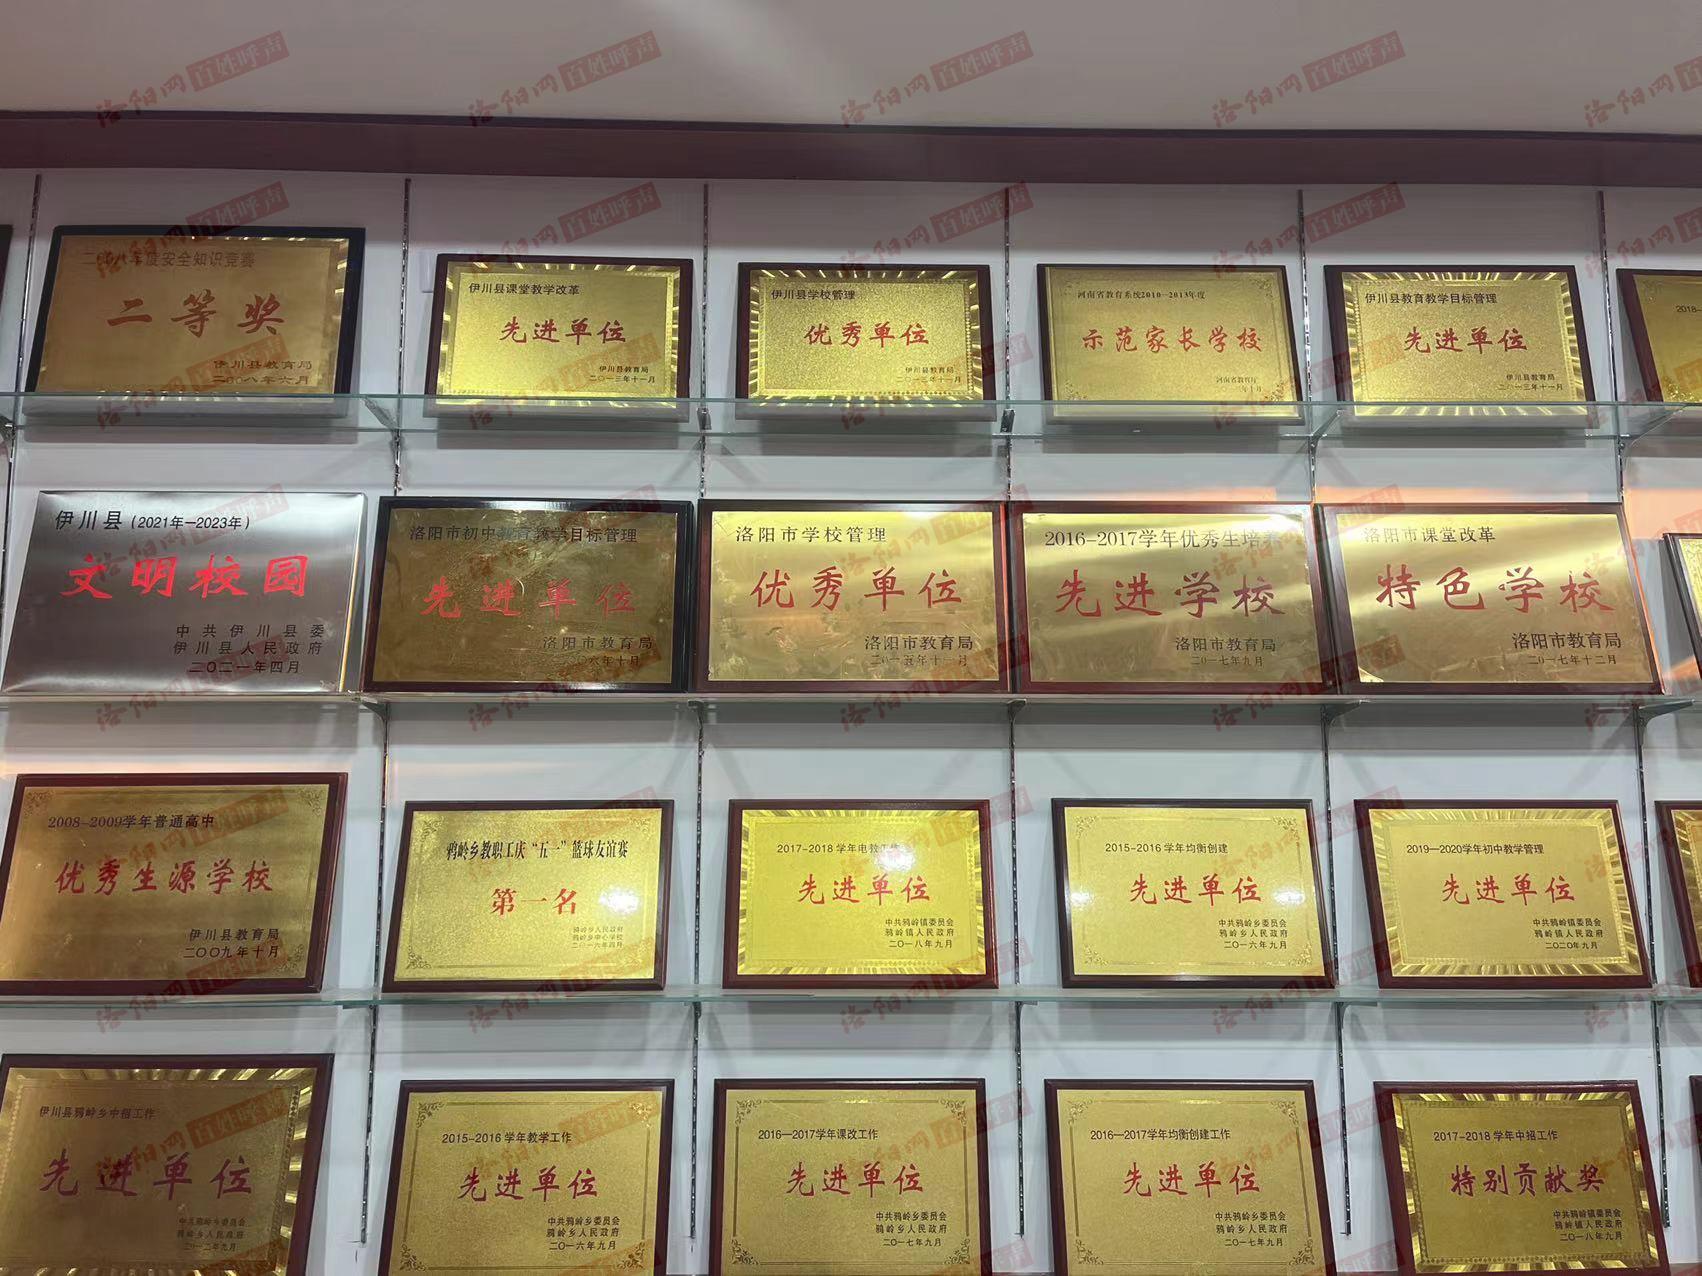 二〇〇八年度安全知识竞赛
二等奖
伊川县教育局
二〇〇八年六月
伊川县课堂教学改革
先进单位
伊川县教育局
二〇一三年十一月
伊川县学校管理
优秀单位
伊川县教育局
二〇一三年十一月
河南省教育系统2010—2013年度
示范家长学校
河南省教育厅
伊川县教育教学目标管理
先进单位
伊川县教育局
二〇一三年十一月
2018-
伊川县(2021年—2023年)
文明校园
中共伊川县委
伊川县人民政府
二〇二一年四月
洛阳市初中教育教学目标管理
先进单位
洛阳市教育局
洛阳市学校管理
优秀单位
洛阳市教育局
二〇一五年十一月
2016-2017学年优秀生培养
先进学校
洛阳市教育局
二〇一七年九月
洛阳市课堂改革
特色学校
洛阳市教育局
二〇一七年十二月
2008-2009学年普通高中
优秀生源学校
伊川县教育局
二〇〇九年十月
鸦岭乡教职工庆“五一”篮球友谊赛
第一名
鸦岭乡人民政府
鸦岭乡中心学校
二〇一六年四月
2017-2018 学年电教工作
先进单位
中共鸦岭镇委员会
鸦岭镇人民政府
二〇一八年九月
2015-2016 学年均衡创建
先进单位
中共鸦岭乡委员会
鸦岭乡人民政府
二〇一六年九月
2019—2020学年初中教学管理
先进单位
中共鸦岭镇委员会
鸦岭镇人民政府
二〇二〇年九月
伊川县鸦岭乡中招工作
先进单位
中共鸦岭乡委员会
鸦岭乡人民政府
二〇一二年九月
2015-2016 学年教学工作
先进单位
中共鸦岭乡委员会
鸦岭乡人民政府
二〇一六年九月
2016—2017学年课改工作
先进单位
中共鸦岭乡委员会
鸦岭乡人民政府
二〇一七年九月
2016—2017学年均衡创建工作
先进单位
中共鸦岭乡委员会
鸦岭乡人民政府
二〇一七年九月
2017-2018 学年中招工作
特别贡献奖
中共鸦岭镇委员会
鸦岭镇人民政府
二〇一八年九月
洛阳网 百姓呼声